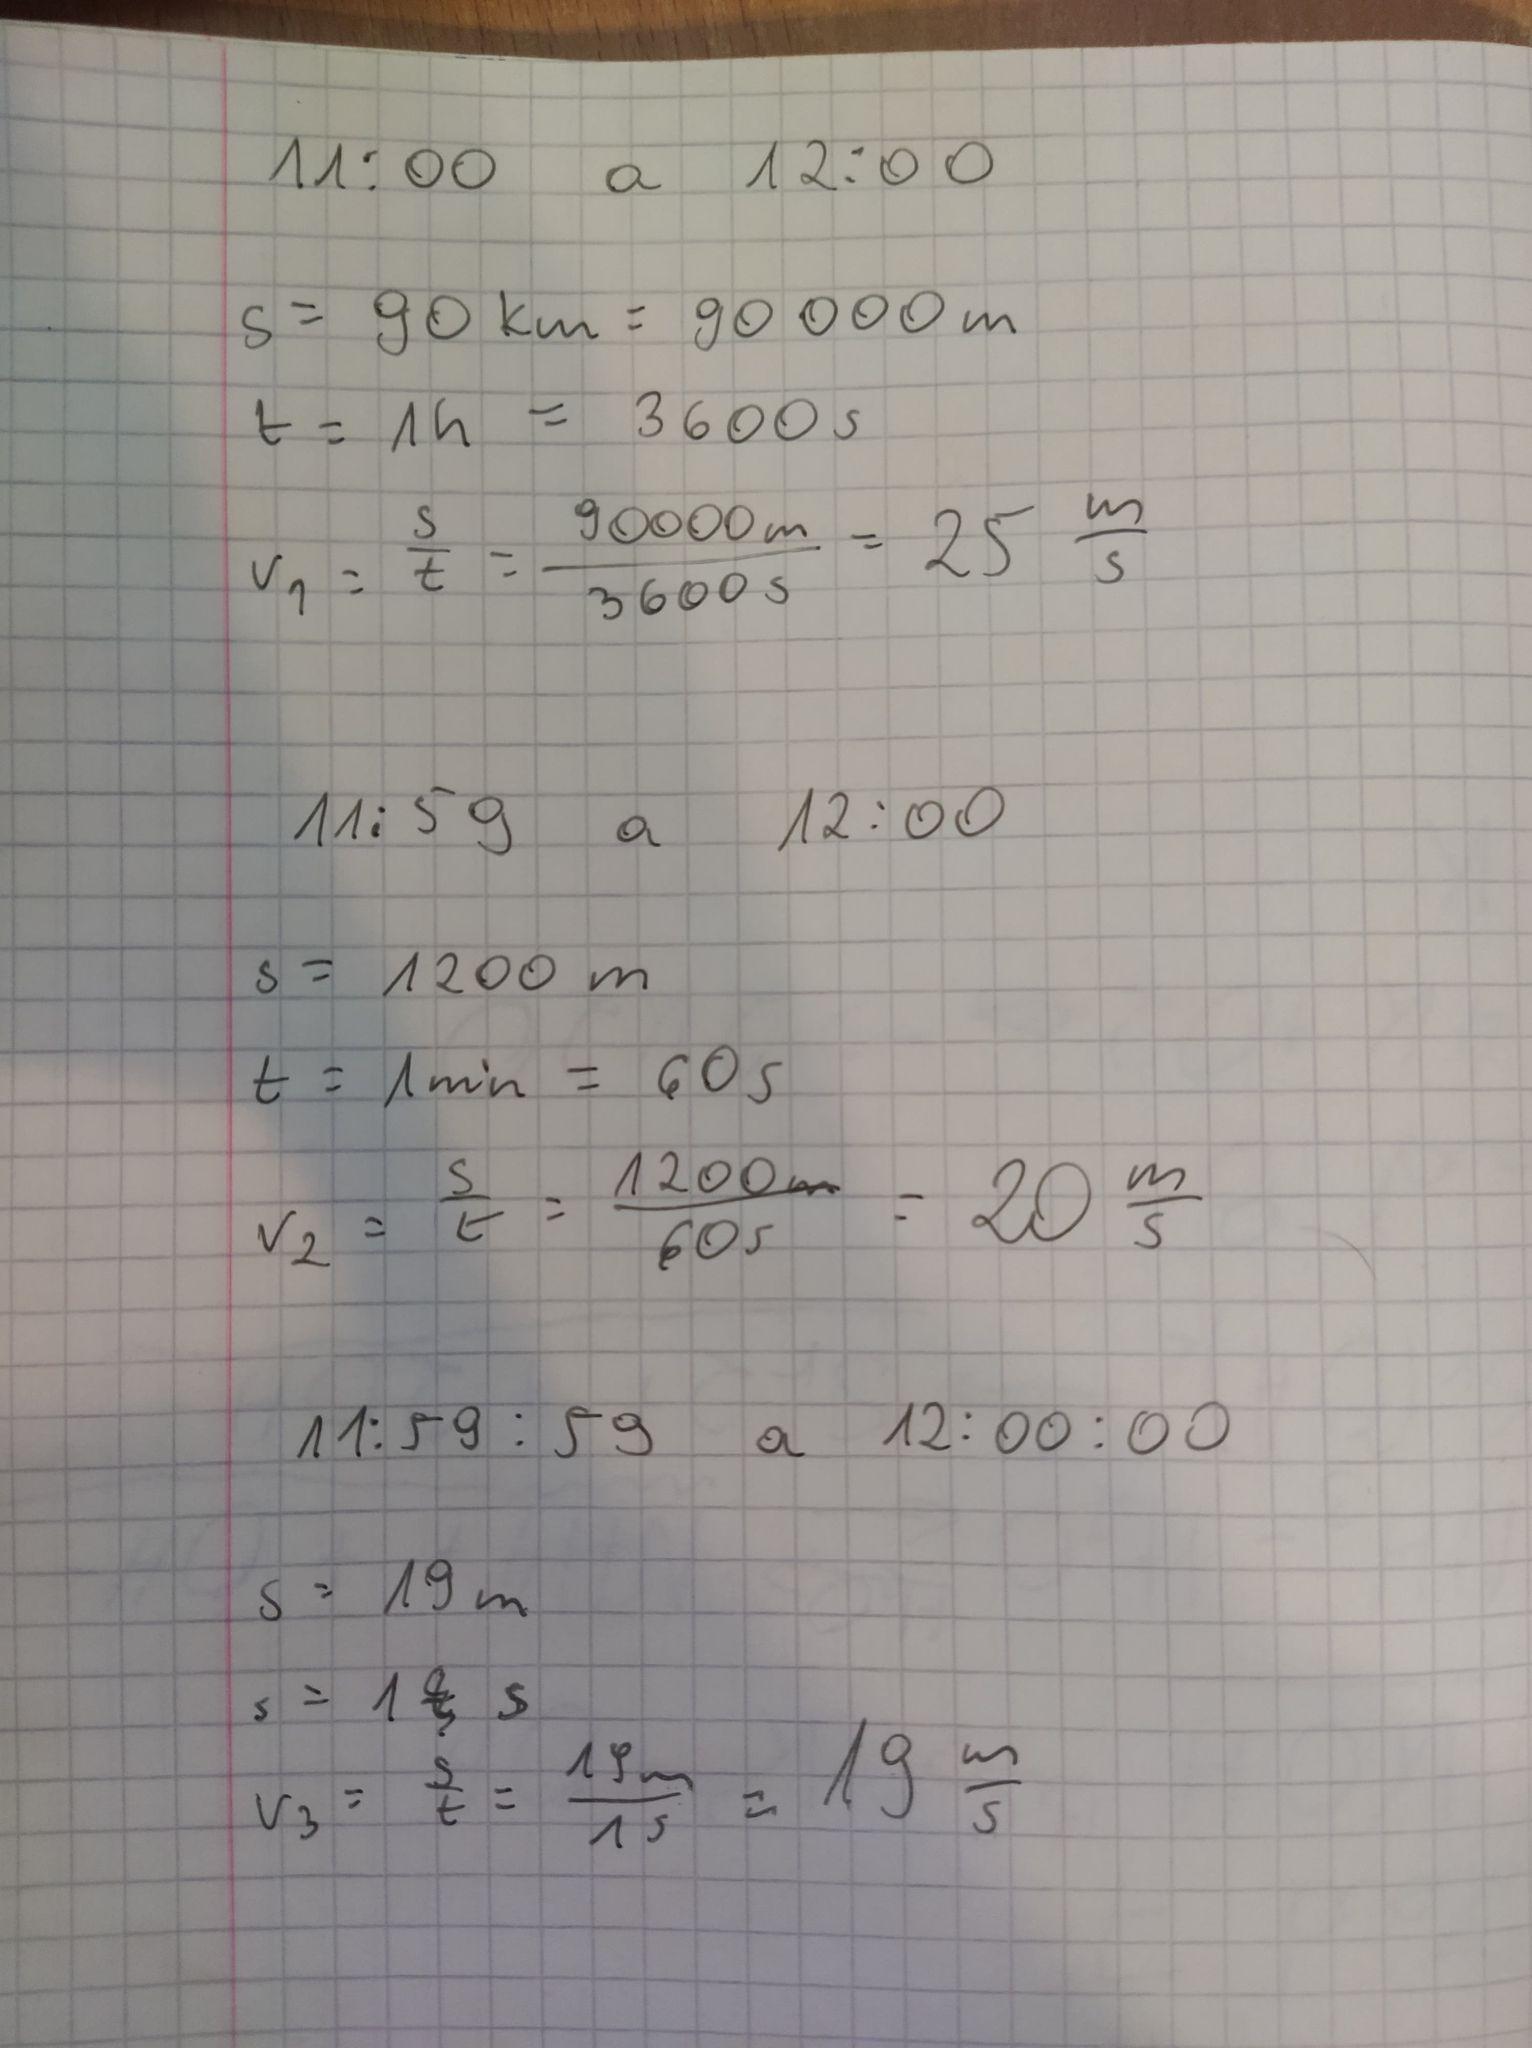 11:00 a 12:00
s = 90 km = 90 000 m
t = 1h = 3600 s
v₁ = s/t = 90000m/3600s = 25 m/s
11:59 a 12:00
s = 1200 m
t = 1min = 60s
v₂ = s/t = 1200m/60s = 20 m/s
11:59:59 a 12:00:00
s = 19 m
s = 1 s
v₃ = s/t = 19m/1s = 19 m/s